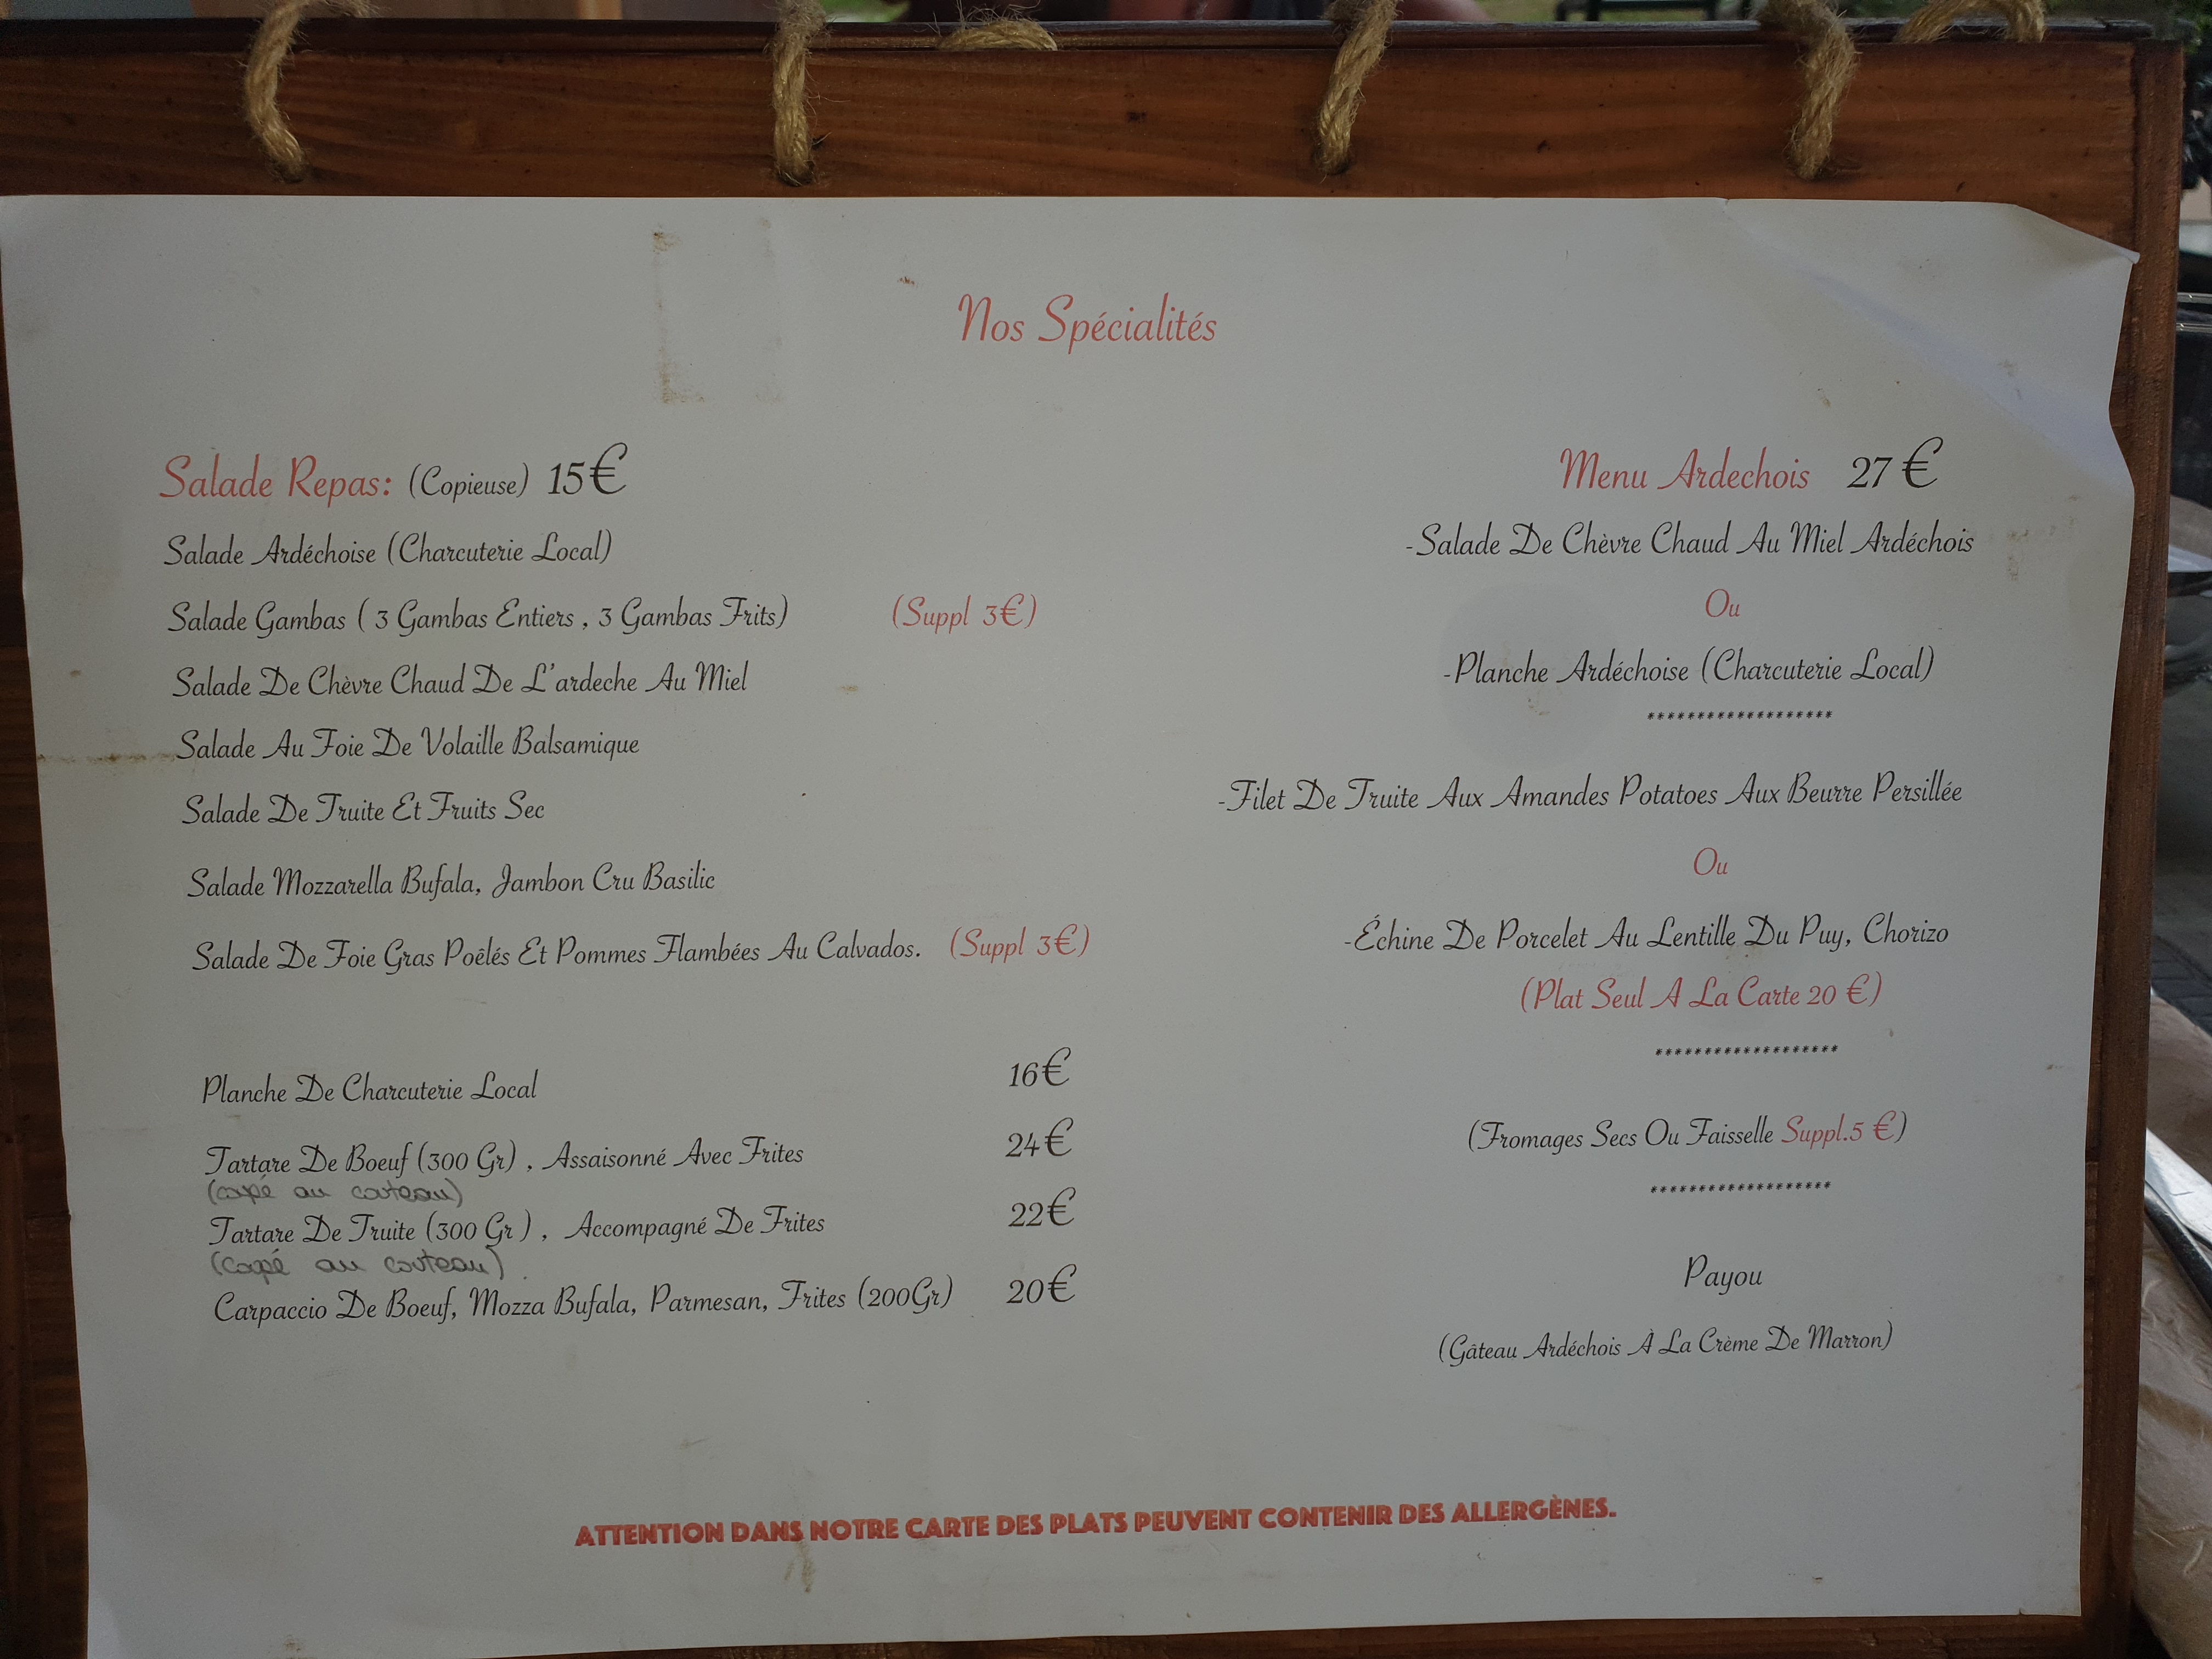 Nos Spécialités
Salade Repas: (Copieuse) 15€
Salade Ardéchoise (Charcuterie Local)
Salade Gambas ( 3 Gambas Entiers , 3 Gambas Frits) (Suppl 3€)
Salade De Chèvre Chaud De L'ardeche Au Miel
Salade Au Foie De Volaille Balsamique
Salade De Truite Et Fruits Sec
Salade Mozzarella Bufala, Jambon Cru Basilic
Salade De Foie Gras Poêlés Et Pommes Flambées Au Calvados. (Suppl 3€)
Planche De Charcuterie Local 16€
Tartare De Boeuf (300 Gr) , Assaisonné Avec Frites 24€
(copé au couteau)
Tartare De Truite (300 Gr ) , Accompagné De Frites 22€
(copé au couteau)
Carpaccio De Boeuf, Mozza Bufala, Parmesan, Frites (200Gr) 20€
Menu Ardechois 27 €
-Salade De Chèvre Chaud Au Miel Ardéchois
Ou
-Planche Ardéchoise (Charcuterie Local)
*******************
-Filet De Truite Aux Amandes Potatoes Aux Beurre Persillée
Ou
-Échine De Porcelet Au Lentille Du Puy, Chorizo
(Plat Seul A La Carte 20 €)
*******************
(Fromages Secs Ou Faisselle Suppl.5 €)
*******************
Payou
(Gâteau Ardéchois À La Crème De Marron)
ATTENTION DANS NOTRE CARTE DES PLATS PEUVENT CONTENIR DES ALLERGÈNES.